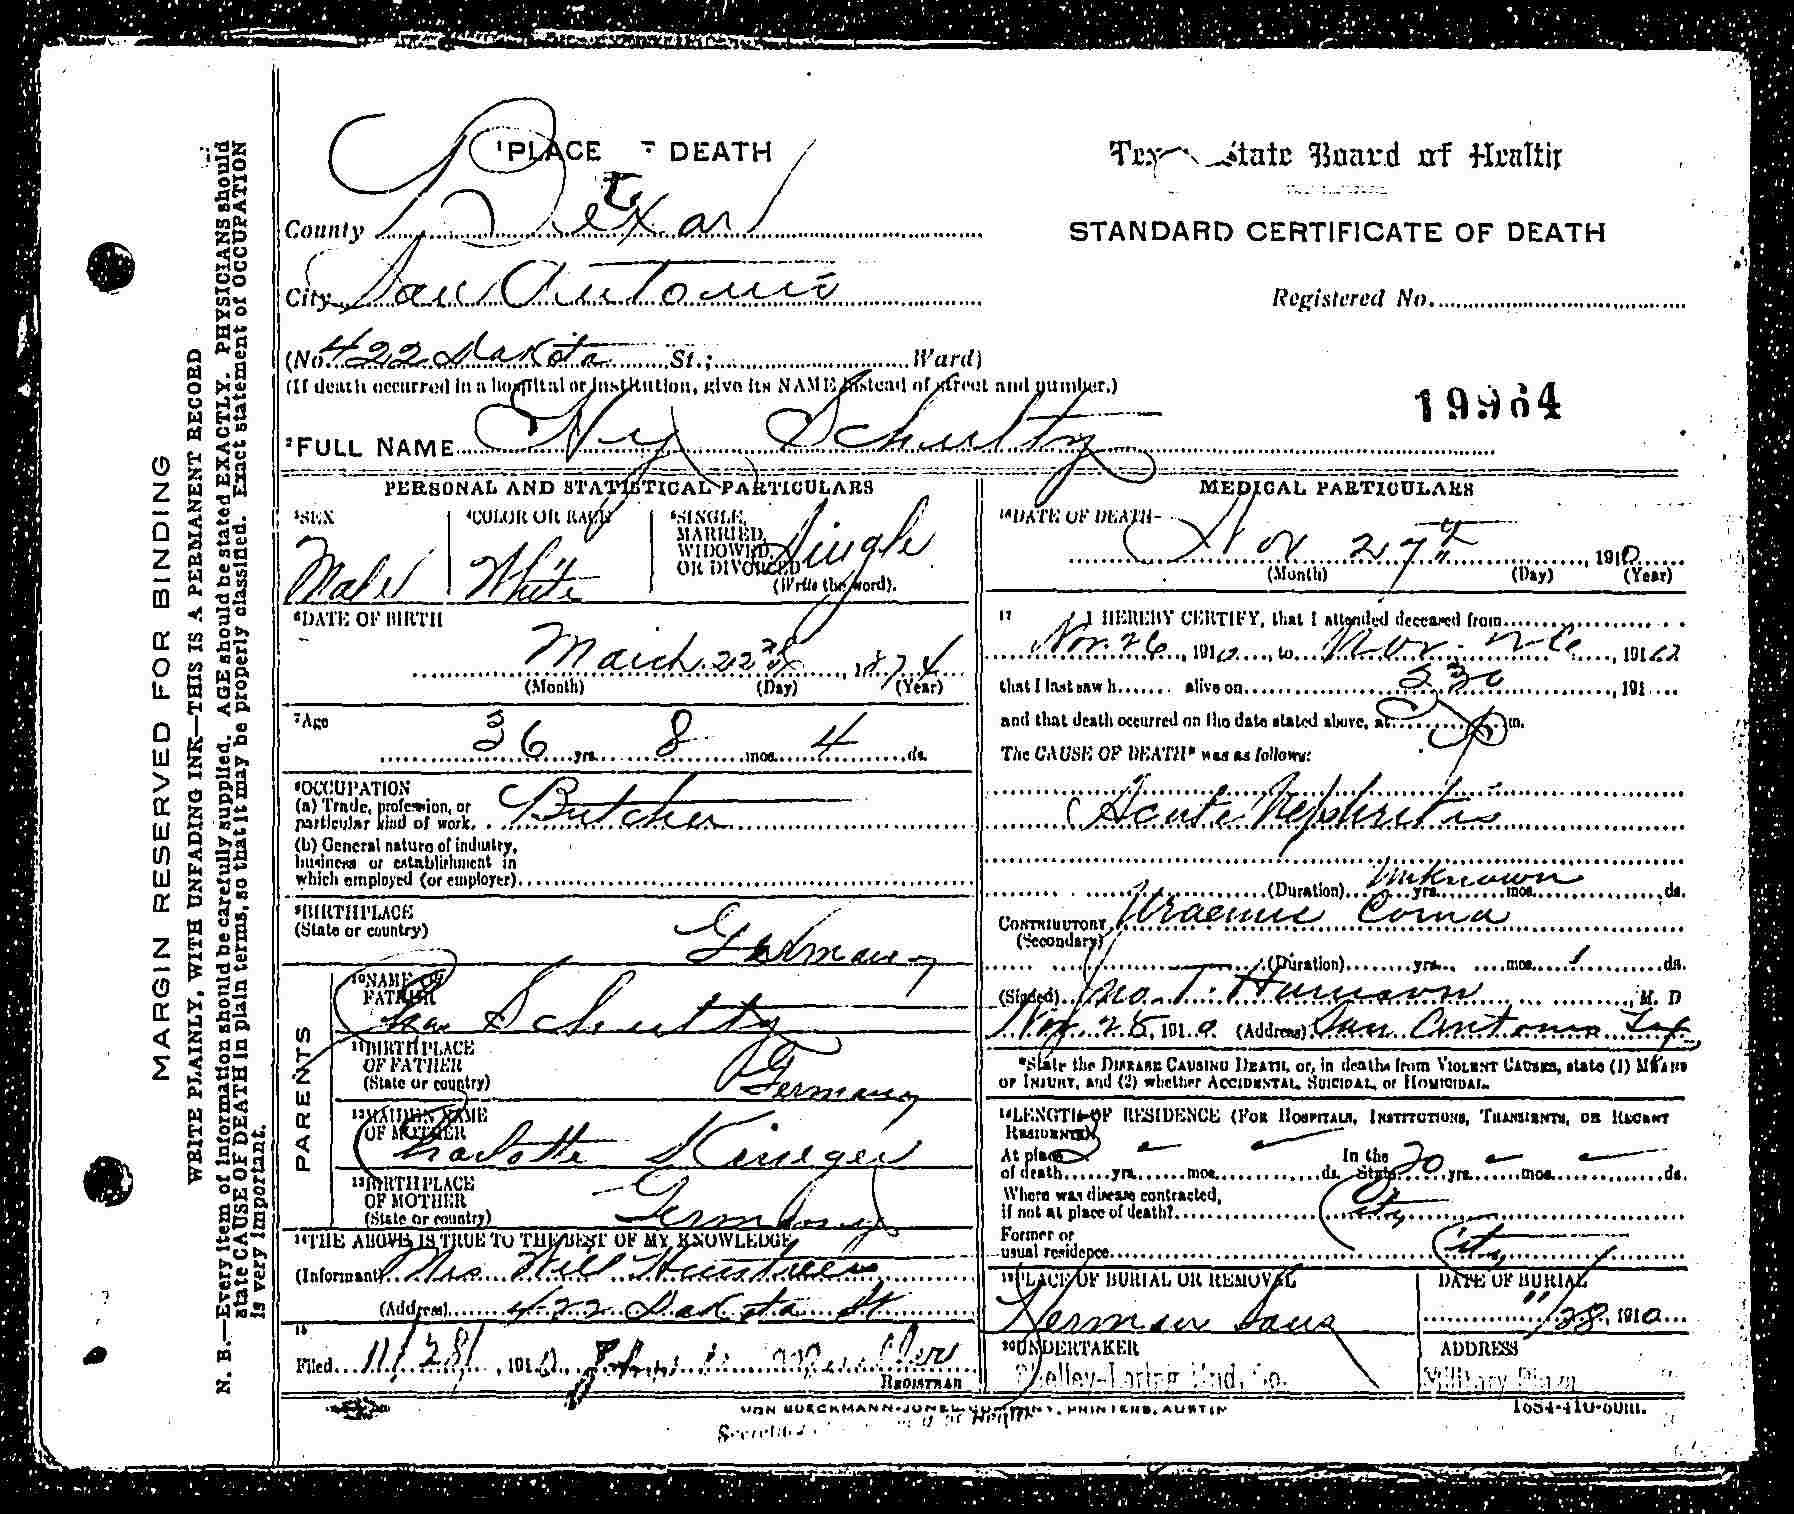 MARGIN RESERVED FOR BINDING
WRITE PLAINLY, WITH UNFADING INK—THIS IS A PERMANENT RECORD
N. B.—Every item of information should be carefully supplied. AGE should be stated EXACTLY. PHYSICIANS should
state CAUSE OF DEATH in plain terms, so that it may be properly classified. Exact statement of OCCUPATION
is very important.
1 PLACE DEATH
County Bexar
City San Antonio
(No. 422 Dakota St.; Ward)
(If death occurred in a hospital or institution, give its NAME instead of street and number.)
Texas State Board of Health
STANDARD CERTIFICATE OF DEATH
Registered No.
19964
2 FULL NAME Hy Schultz
PERSONAL AND STATISTICAL PARTICULARS
3 SEX Male
4 COLOR OR RACE White
5 SINGLE, MARRIED, WIDOWED, OR DIVORCED (Write the word). Single
6 DATE OF BIRTH
March 22nd, 1874
(Month) (Day) (Year)
7 Age
36 yrs. 8 mos. 4 ds.
8 OCCUPATION
(a) Trade, profession, or
particular kind of work. Butcher
(b) General nature of industry,
business or establishment in
which employed (or employer)
9 BIRTHPLACE
(State or country) Germany
PARENTS
10 NAME OF
FATHER Chas Schultz
11 BIRTHPLACE
OF FATHER
(State or country) Germany
12 MAIDEN NAME
OF MOTHER Charlotte Krueger
13 BIRTHPLACE
OF MOTHER
(State or country) Germany
14 THE ABOVE IS TRUE TO THE BEST OF MY KNOWLEDGE
(Informant) Mrs Will
(Address) 422 Dakota St
15
Filed 11/28/, 1910
REGISTRAR
MEDICAL PARTICULARS
16 DATE OF DEATH
Nov 27th, 1910
(Month) (Day) (Year)
17 I HEREBY CERTIFY, that I attended deceased from
Nov. 26, 1910, to Nov. 26, 1910
that I last saw h alive on 530, 191
and that death occurred on the date stated above, at m.
The CAUSE OF DEATH* was as follows:
Acute Nephritis
(Duration) unknown yrs. mos. ds.
CONTRIBUTORY Uraemic Coma
(Secondary)
(Duration) yrs. mos. 1 ds.
(Signed) Jno. T. Harrison, M. D
Nov. 28, 1910 (Address) San Antonio Tex
*State the DISEASE CAUSING DEATH, or, in deaths from VIOLENT CAUSES, state (1) MEANS
OF INJURY, and (2) whether ACCIDENTAL, SUICIDAL, or HOMICIDAL.
18 LENGTH OF RESIDENCE (FOR HOSPITALS, INSTITUTIONS, TRANSIENTS, OR RECENT
RESIDENTS)
At place In the
of death 3 yrs. – mos. – ds. State 20 yrs. – mos. – ds.
Where was disease contracted,
if not at place of death? City
Former or
usual residence City
19 PLACE OF BURIAL OR REMOVAL DATE OF BURIAL
Herman Sons 11/28, 1910
20 UNDERTAKER ADDRESS
Shelley-Loring Und. Co. Military Plaza
VON BOECKMANN-JONES COMPANY, PRINTERS, AUSTIN
1684-410-60m.